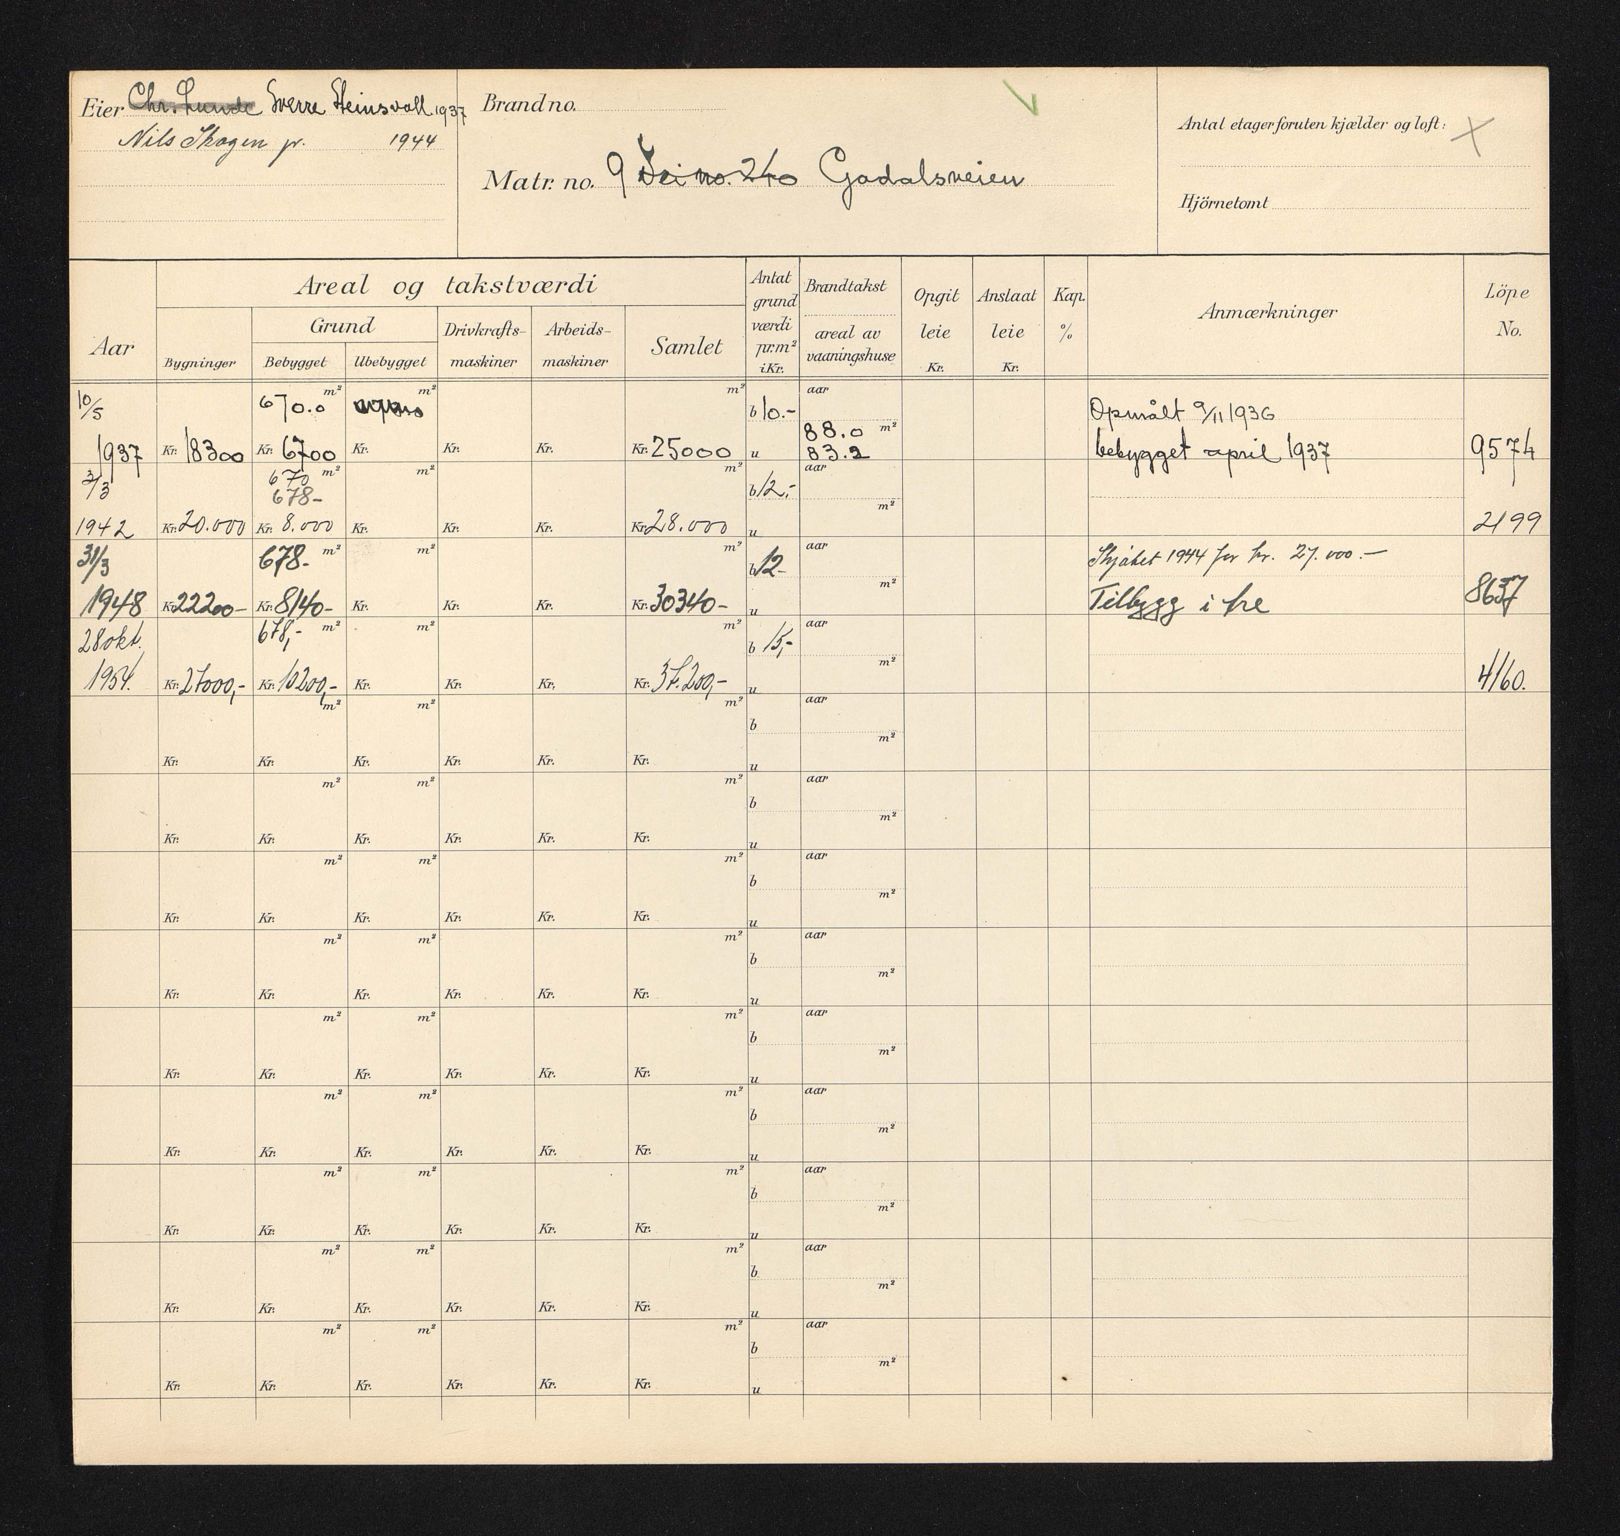 Eier Chr. Lunde Sverre Steinsvoll 1937
Nils Skogen jr. 1944
Brand no.
Matr. no. 9 Vei no. 240 Godalsveien
Antal etager foruten kjælder og loft: X
Hjörnetomt
Aar
Areal og takstværdi
Bygninger
Grund
Bebygget Ubebygget
Drivkrafts-
maskiner
Arbeids-
maskiner
Samlet
Antat
grund
værdi
pr. m²
i Kr.
Brandtakst
areal av
vaaningshuse
Opgit
leie
Kr.
Anslaat
leie
Kr.
Kap.
%
Anmærkninger
Löpe
No.
10/5 670.0 m² m² m² b 10.- aar Opmålt 9/11 1936
88.0 m²
1937 Kr. 18300 Kr. 6700 Kr. Kr. Kr. Kr. 25000 u 83.2 bebygget april 1937 9574
3/3 670 m² m² m² b 12,- aar
678- m²
1942 Kr. 20.000 Kr. 8.000 Kr. Kr. Kr. Kr. 28.000 u 2199
31/3 678- m² m² m² b 12- aar Skjötet 1944 for kr. 27.000.-
m²
1948 Kr. 22200- Kr. 8140- Kr. Kr. Kr. Kr. 30340- u Tilbygg i tre 8637
28 okt. 678,- m² m² m² b 15,- aar
m²
1954. Kr. 27000,- Kr. 10200,- Kr. Kr. Kr. Kr. 37.200,- u 4160.
m² m² m² b aar
m²
Kr. Kr. Kr. Kr. Kr. Kr. u
m² m² m² b aar
m²
Kr. Kr. Kr. Kr. Kr. Kr. u
m² m² m² b aar
m²
Kr. Kr. Kr. Kr. Kr. Kr. u
m² m² m² b aar
m²
Kr. Kr. Kr. Kr. Kr. Kr. u
m² m² m² b aar
m²
Kr. Kr. Kr. Kr. Kr. Kr. u
m² m² m² b aar
m²
Kr. Kr. Kr. Kr. Kr. Kr. u
m² m² m² b aar
m²
Kr. Kr. Kr. Kr. Kr. Kr. u
m² m² m² b aar
m²
Kr. Kr. Kr. Kr. Kr. Kr. u
m² m² m² b aar
m²
Kr. Kr. Kr. Kr. Kr. Kr. u